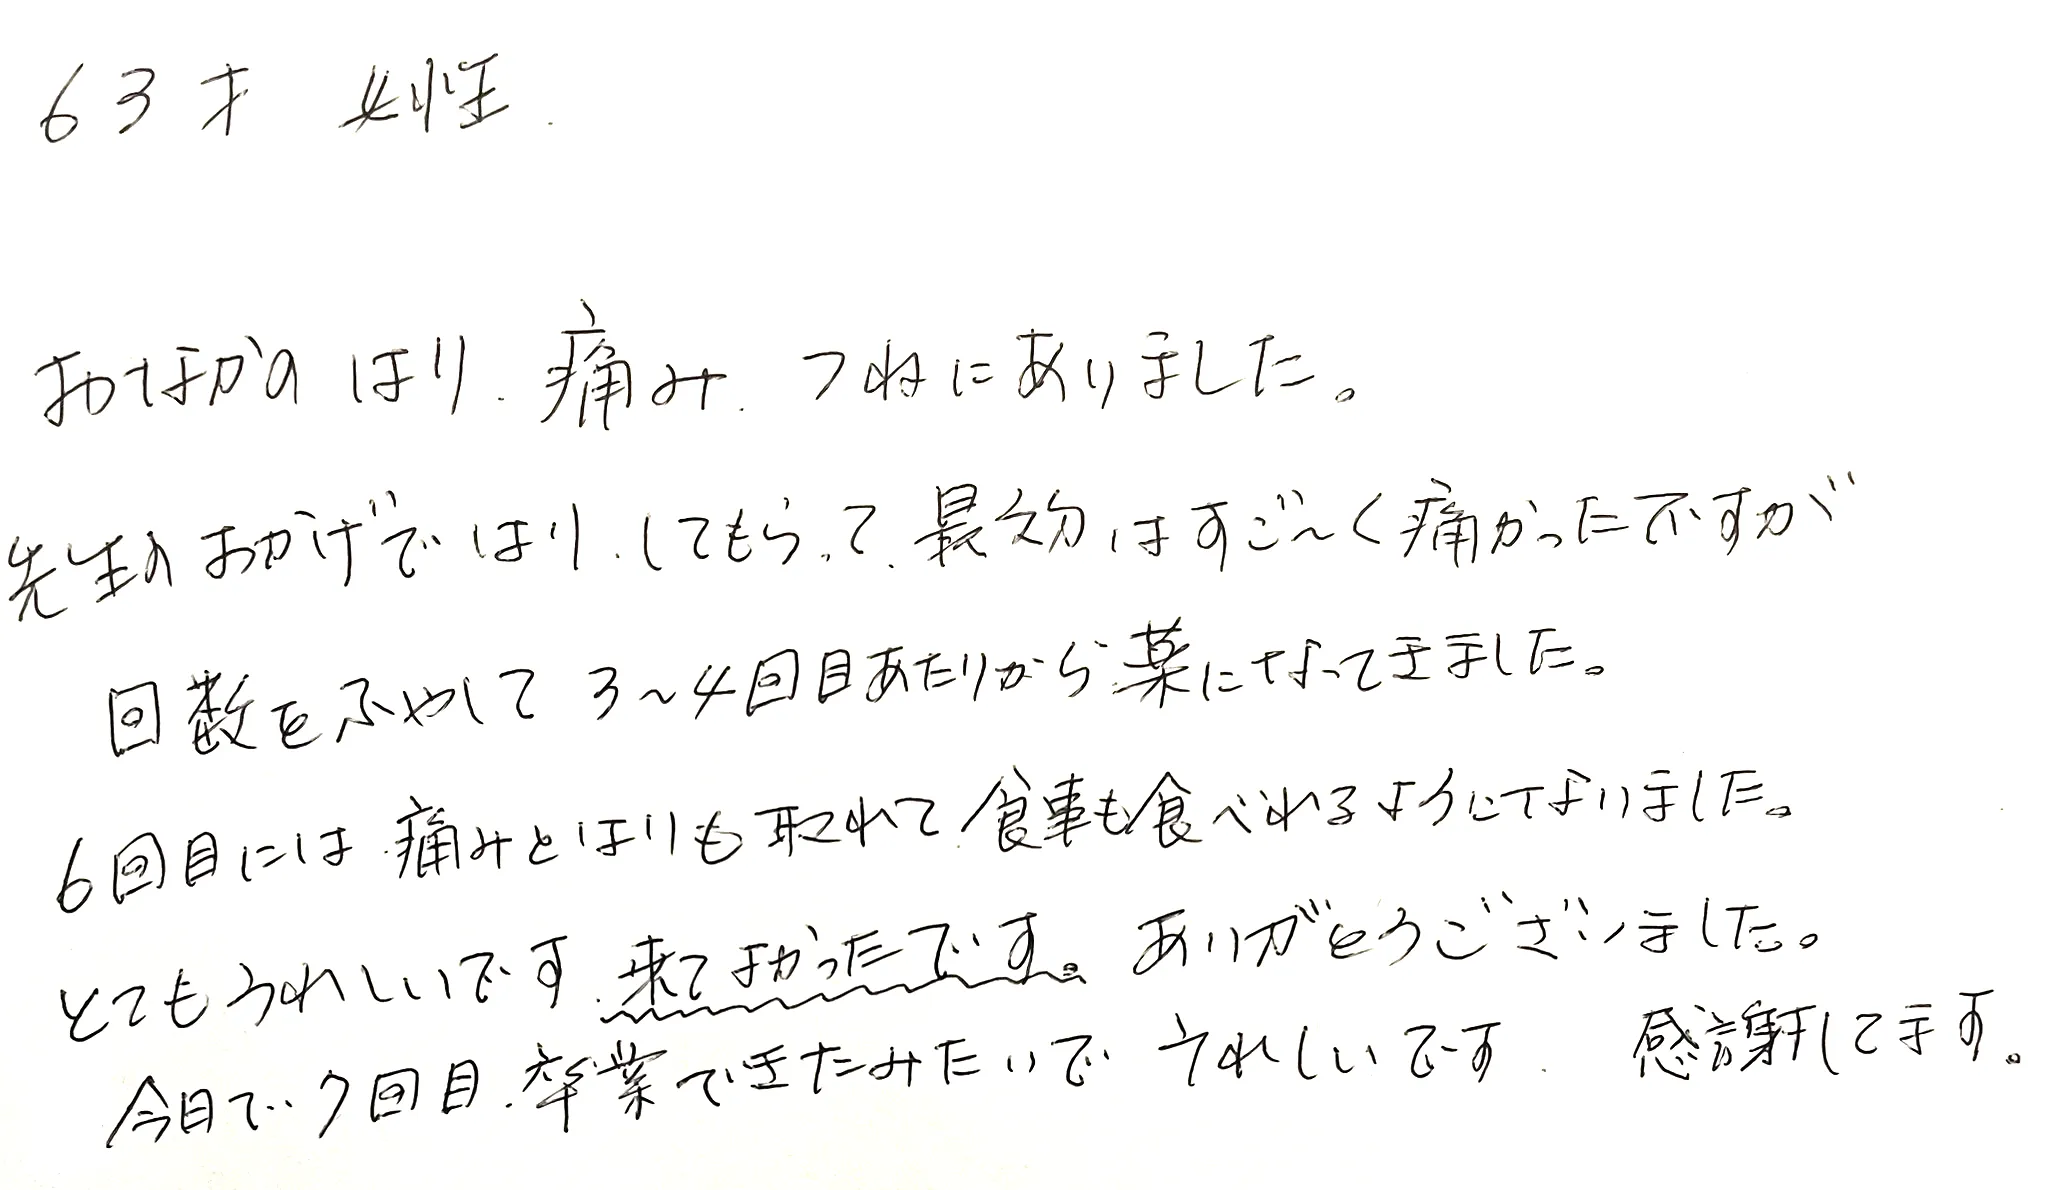 63才 女性.
おなかのはり. 痛み. つねにありました。
先生のおかげではり.してもらって.最初はすご〜く痛かったですが
回数をふやして 3〜4回目あたりから楽になってきました。
6回目には.痛みとはりも取れて.食事も食べれるようになりました。
とてもうれしいです.来てよかったです。ありがとうございました。
今日で.7回目.卒業できたみたいで うれしいです. 感謝してます。